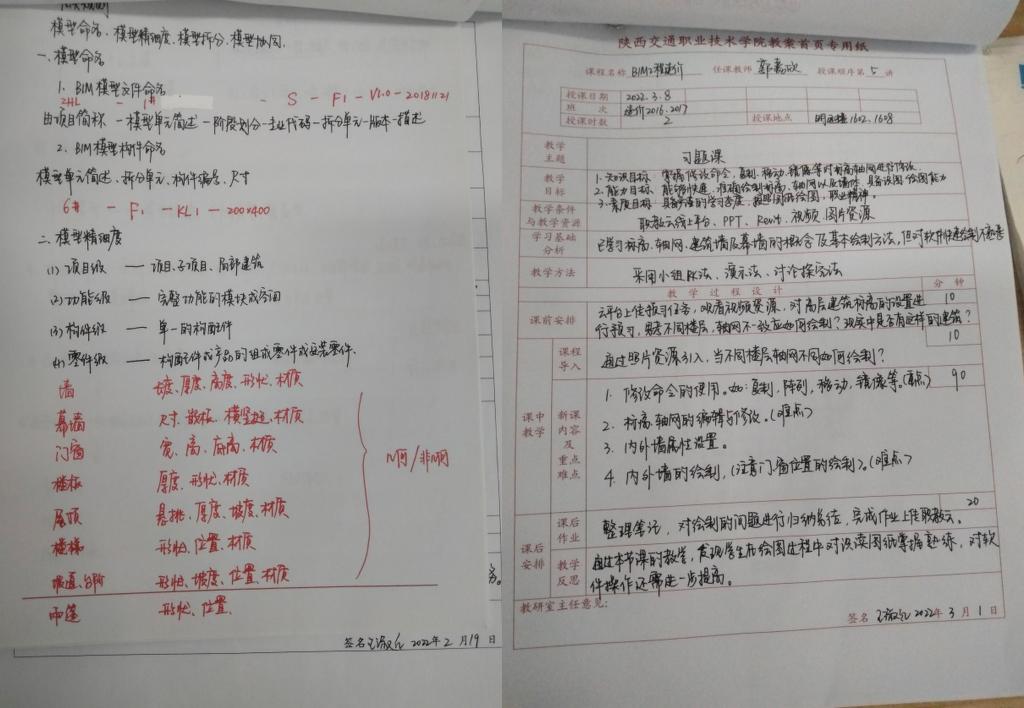 模型命名、模型精细度、模型拆分、模型协同.
一、模型命名
1. BIM模型文件命名
2HL - 1# - S - F1 - V1.0 - 20181121
由项目简称-模型单元简述-阶段划分-专业代码-拆分单元-版本-描述
2. BIM模型构件命名
模型单元简述、拆分单元、构件编号、尺寸
6# - F1 - KL1 - 200×400
二、模型精细度
(1) 项目级 — 项目、子项目、局部建筑
(2) 功能级 — 完整功能的模块或空间
(3) 构件级 — 单一的构配件
(4) 零件级 — 构配件或产品的组成零件或安装零件.
墙 长度、厚度、高度、形状、材质
幕墙 尺寸、嵌板、横竖梃、材质
门窗 宽、高、底高、材质
楼板 厚度、形状、材质
屋顶 悬挑、厚度、坡度、材质
楼梯 形状、位置、材质
坡道、台阶 形状、坡度、位置、材质
雨篷 形状、位置、
签名 2022年 2 月 19 日
陕西交通职业技术学院教案首页专用纸
课程名称 BIM工程造价 任课教师 郭嘉欣 授课顺序第 5 讲
授课日期 2022.3.8
班 次 造价2016.2017
授课时数 2 授课地点 明远楼1602.1608
教学主题 习题课
教学目标 1.知识目标: 掌握修改命令,复制、移动、镜像等对标高轴网进行修改
2.能力目标: 能够快速、准确绘制标高、轴网以及墙体,具备识图绘图能力
3.素质目标: 具备严谨的学习态度,按照图纸绘图,职业精神。
教学条件与教学资源 职教云线上平台、PPT、Revit、视频、图片资源
学习基础分析 已学习标高、轴网、建筑墙及幕墙的概念及基本绘制方法,但对软件快速绘制不熟悉
教学方法 采用小组PK法、演示法、讨论探究法
教 学 过 程 设 计 分 钟
课前安排 云平台上传预习任务,观看视频资源,对高层建筑标高的设置进 10
行预习,思考不同楼层,轴网不一致应如何绘制?现实中是否有这样的建筑?
课中教学 课程导入 通过照片资源引入,当不同楼层轴网不同如何绘制? 10
新课内容及重点难点 1. 修改命令的使用。如:复制,阵列,移动,镜像等。(重点) 90
2. 标高、轴网的编辑与修改。(难点)
3. 内外墙属性设置。
4. 内外墙的绘制,(注意门、窗位置的绘制)。(难点)
课后安排 课后作业 整理笔记,对绘制的问题进行归纳总结,完成作业上传职教云。 20
教学反思 通过本节课的教学,发现学生在绘图过程中对识读图纸掌握熟练,对软
件操作还需进一步提高。
教研室主任意见:
签名 2022年 3 月 1 日